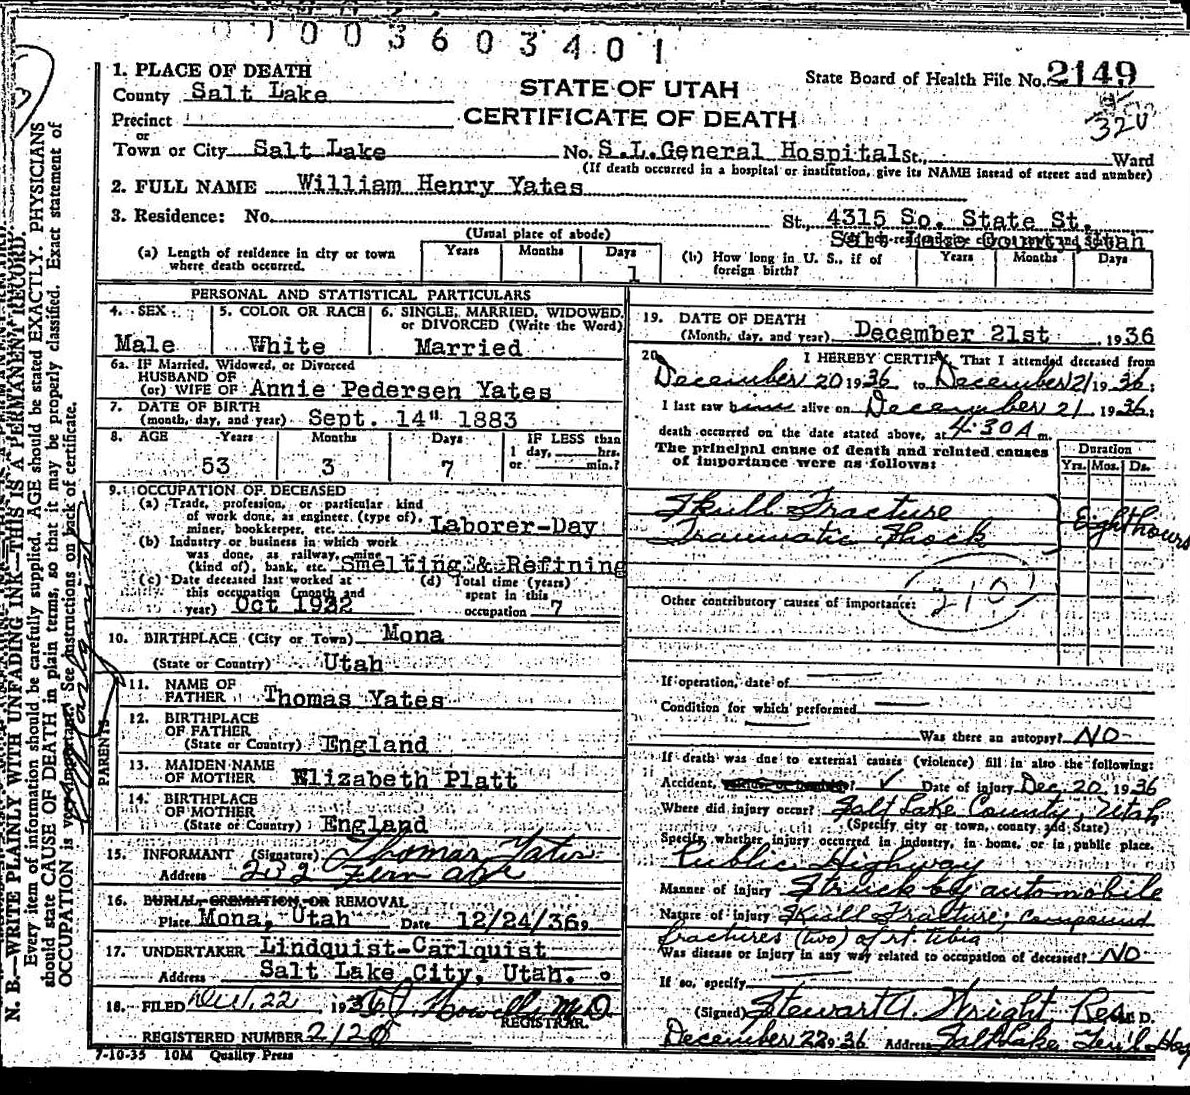 0 1 0 0 3 6 0 3 4 0 1
1. PLACE OF DEATH
County Salt Lake
STATE OF UTAH
CERTIFICATE OF DEATH
State Board of Health File No. 2149
Precinct
or
Town or City Salt Lake No. S.L.General Hospital St., Ward
(If death occurred in a hospital or institution, give its NAME instead of street and number)
2. FULL NAME William Henry Yates
3. Residence: No. St., 4315 So. State St.
(Usual place of abode) Salt Lake County, Utah
(a) Length of residence in city or town where death occurred. Years Months Days 1
(b) How long in U. S., if of foreign birth? Years Months Days
PERSONAL AND STATISTICAL PARTICULARS
4. SEX Male
5. COLOR OR RACE White
6. SINGLE, MARRIED, WIDOWED, or DIVORCED (Write the Word) Married
6a. IF Married, Widowed, or Divorced
HUSBAND OF
(or) WIFE OF Annie Pedersen Yates
7. DATE OF BIRTH
(month, day, and year) Sept. 14" 1883
8. AGE Years 53 Months 3 Days 7 IF LESS than 1 day, hrs. or min.?
9. OCCUPATION OF DECEASED
(a) Trade, profession, or particular kind
of work done, as engineer, (type of),
miner, bookkeeper, etc. Laborer-Day
(b) Industry or business in which work
was done, as railway, mine
(kind of), bank, etc. Smelting & Refining
(c) Date deceased last worked at
this occupation (month and
year) Oct 1932
(d) Total time (years)
spent in this
occupation 7
10. BIRTHPLACE (City or Town) Mona
(State or Country) Utah
PARENTS
11. NAME OF
FATHER Thomas Yates
12. BIRTHPLACE
OF FATHER
(State or Country) England
13. MAIDEN NAME
OF MOTHER Elizabeth Platt
14. BIRTHPLACE
OF MOTHER
(State or Country) England
15. INFORMANT (Signature) Thomas Yates
Address 232 Fern ave
16. BURIAL, CREMATION, OR REMOVAL
Place Mona, Utah Date 12/24/36
17. UNDERTAKER Lindquist-Carlquist
Address Salt Lake City, Utah.
18. FILED Dec. 22 1936 Howells M.D.
REGISTRAR.
REGISTERED NUMBER 2128
7-10-35 10M Quality Press
19. DATE OF DEATH
(Month, day, and year) December 21st 1936
20. I HEREBY CERTIFY, That I attended deceased from
December 20 1936 to December 21 1936;
I last saw him alive on December 21 1936;
death occurred on the date stated above, at 4:30 A m.
The principal cause of death and related causes
of importance were as follows:
Duration
Yrs. Mos. Ds.
Skull Fracture
Traumatic Shock
Eight hours
Other contributory causes of importance:
210
If operation, date of
Condition for which performed
Was there an autopsy? NO
If death was due to external causes (violence) fill in also the following:
Accident, suicide or homicide? ✓ Date of injury Dec 20 1936
Where did injury occur? Salt Lake County, Utah
(Specify city or town, county and State)
Specify whether injury occurred in industry, in home, or in public place.
Public Highway
Manner of injury Struck by automobile
Nature of injury Skull Fracture; compound
fractures (two) of rt. tibia
Was disease or injury in any way related to occupation of deceased? NO
If so, specify
(Signed) Stewart A. Wright, Res. M. D.
December 22 1936 Address Salt Lake Gen'l Hosp
N. B.—WRITE PLAINLY WITH UNFADING INK—THIS IS A PERMANENT RECORD.
Every item of information should be carefully supplied. AGE should be stated EXACTLY. PHYSICIANS
should state CAUSE OF DEATH in plain terms, so that it may be properly classified. Exact statement of
OCCUPATION is very important. See instructions on back of certificate.